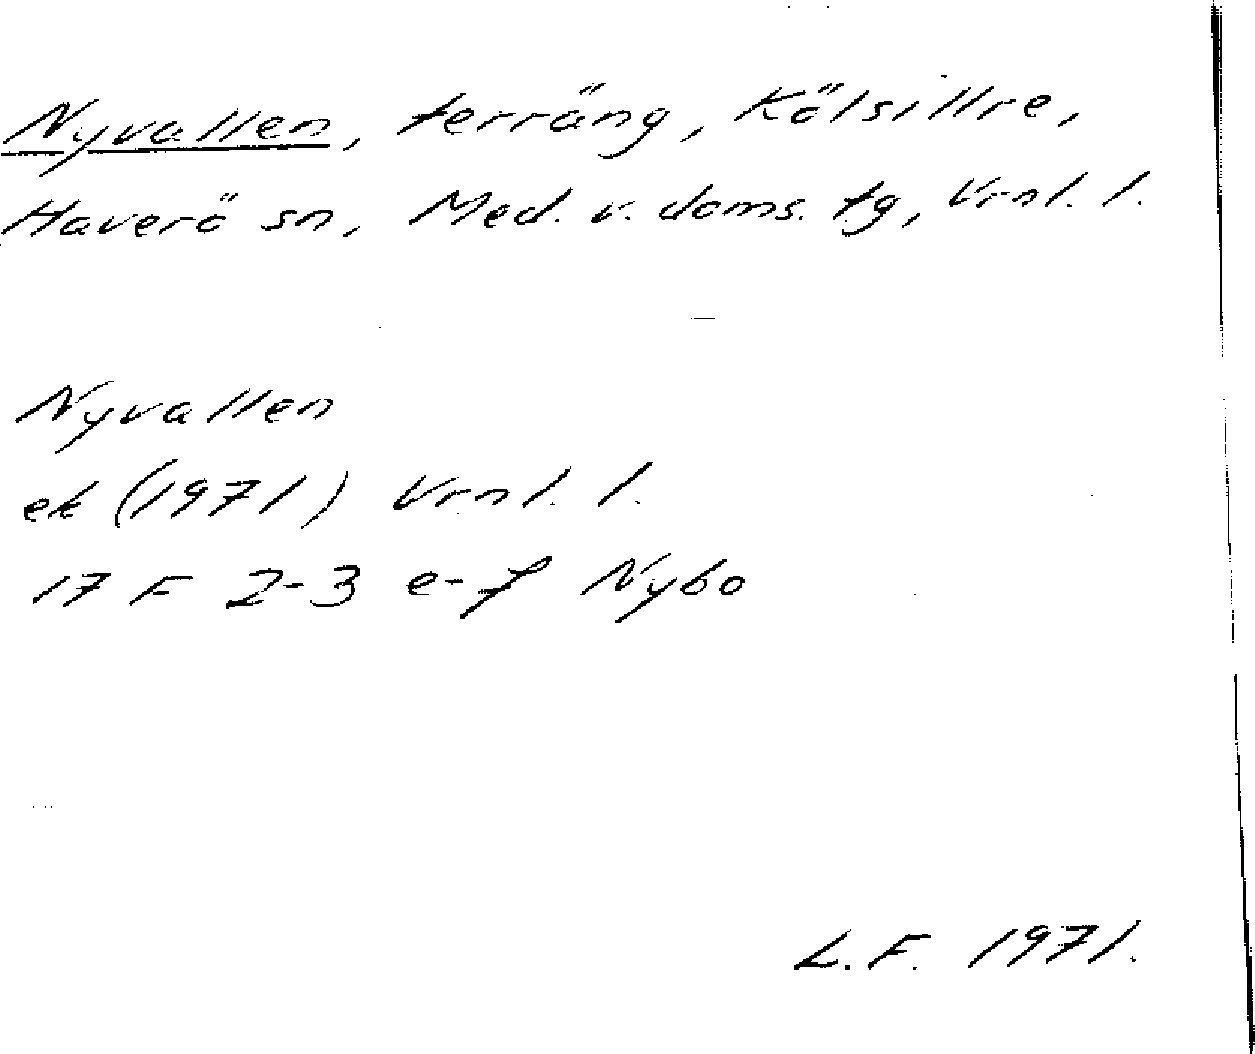 Nyvallen, terräng, Kölsillre,
Haverö sn, Med. v. doms. tg, Vrnl. l.
Nyvallen
ek (1971) Vrnl. l.
17 F 2-3 e-f Nybo
L.F. 1971.